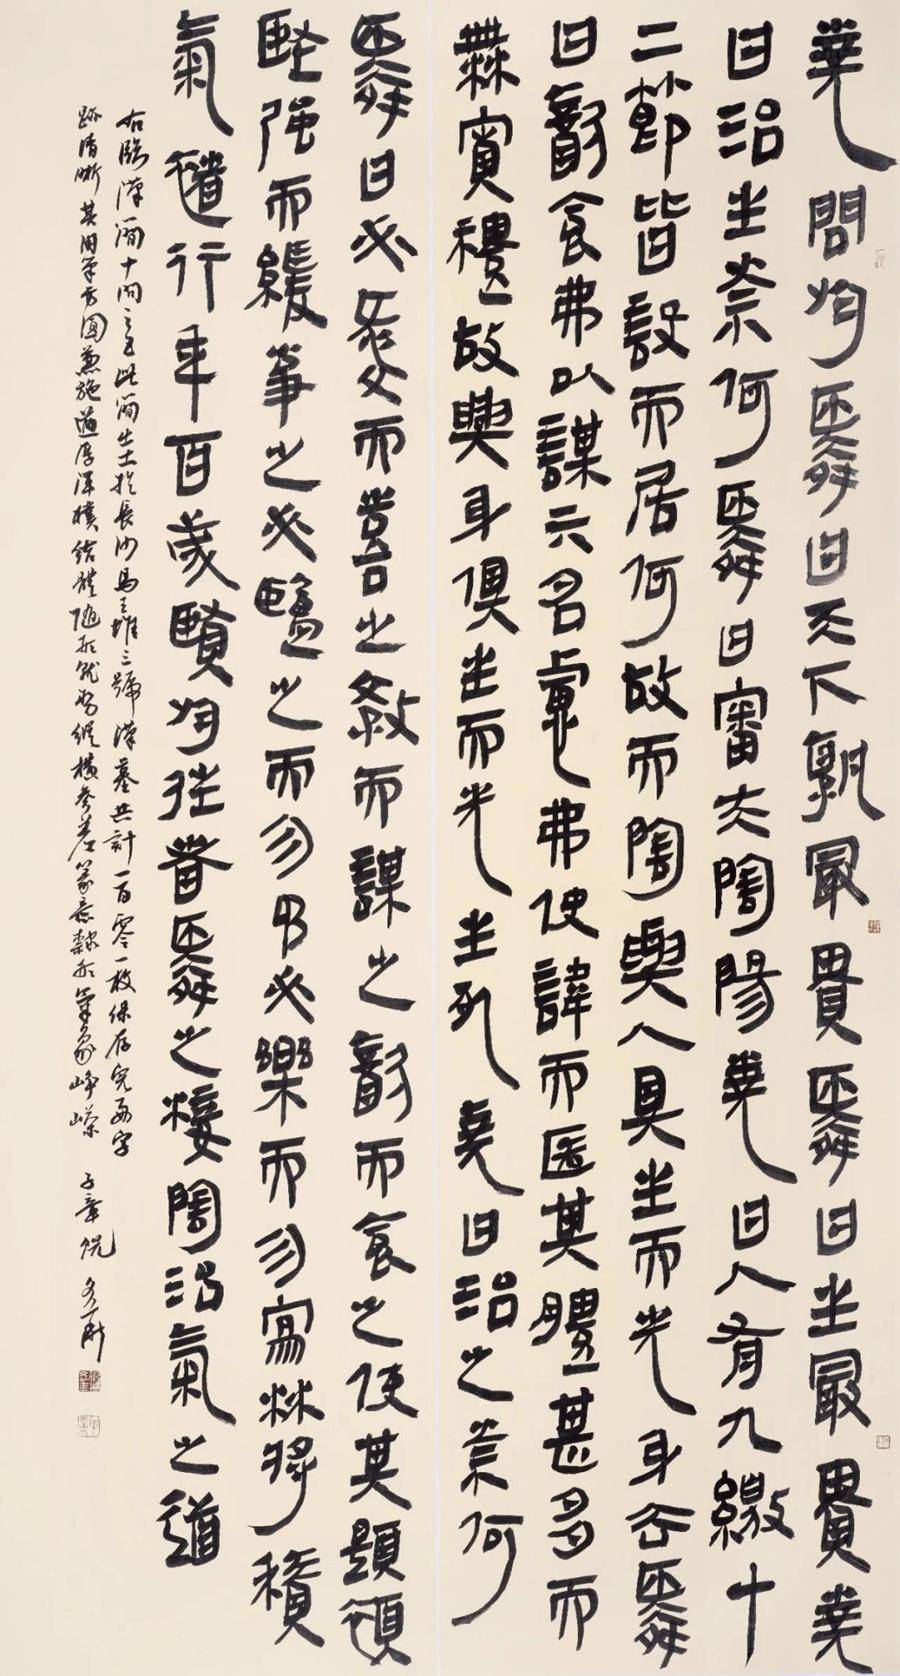 堯問於舜曰天下孰最貴舜曰生最貴堯
曰治生奈何舜曰審夫陰陽堯曰人有九繳十
二節皆設而居何故而陰與人具生而先身去舜
曰飲食弗以謀亓名慮弗使諱而匿其體甚多而
無寬禮故與身俱生而先生死堯曰治之奈何
舜曰必愛而喜之教而謀之飲而食之使其題頏
堅强而緩事之必鹽之而勿予必樂而勿寫材將積
氣行年百歲賢於往者舜之椄陰治氣之道
右臨漢簡十問之五此簡出土於長沙馬王堆三號漢墓共計一百零一枚保存完好字
跡清晰其用筆方圓兼施遒厚渾樸結體隨形就勢縱橫參差篆意隸形氣象崢嶸 子章